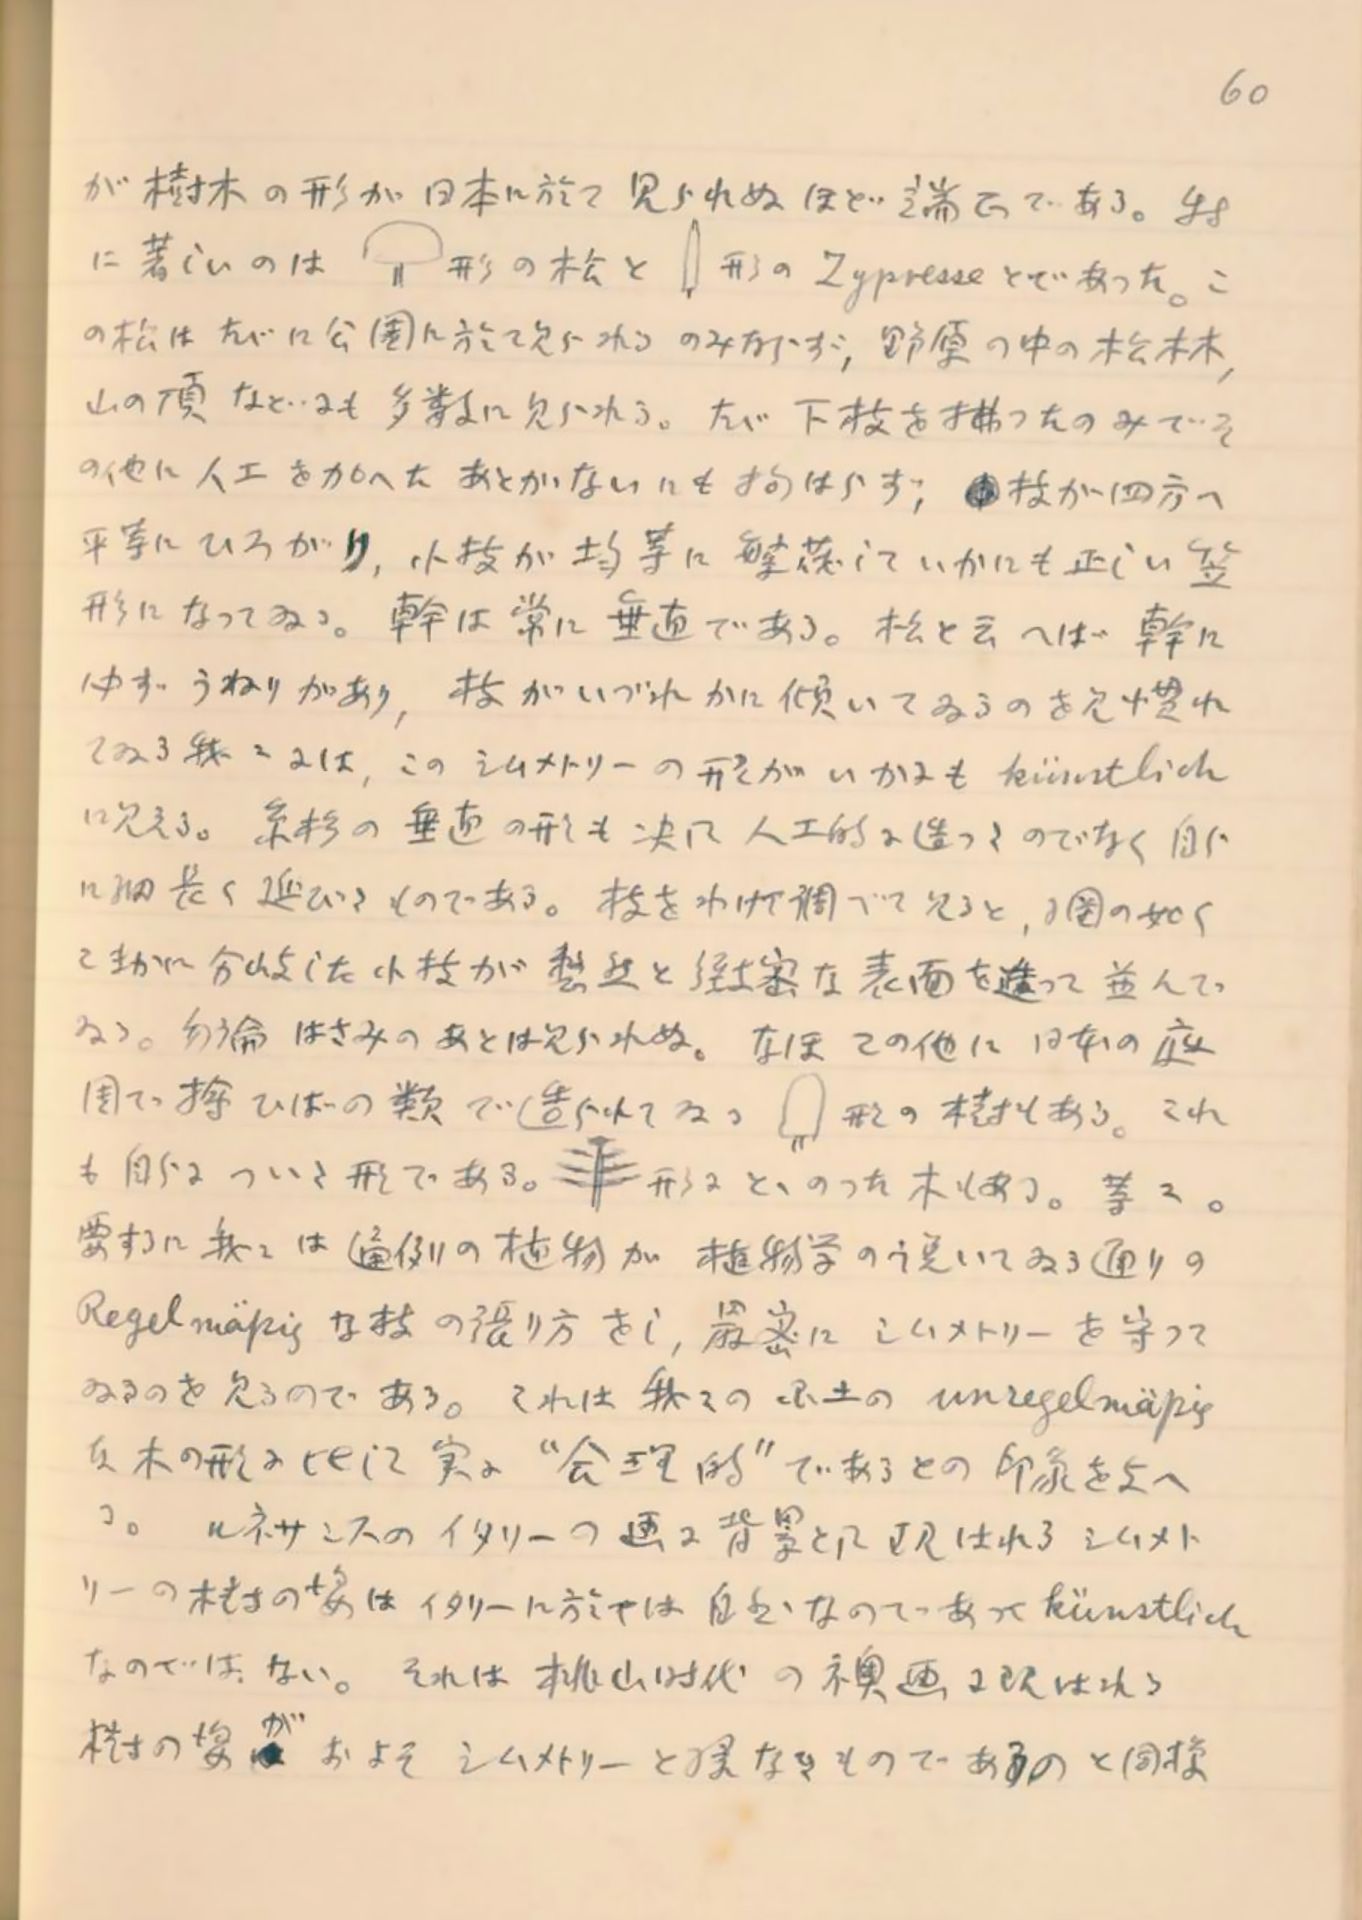 60
が樹木の形が日本に於て見られぬほど端正である。特
に著しいのは 形の松と 形の Zypresse とであった。こ
の松はたゞに公園に於て見られるのみならず, 野原の中の松林,
山の頂などにも多数に見られる。たゞ下枝を拂つたのみでそ
の他に人工を加へたあとがないにも拘はらず, 枝が四方へ
平等にひろがり, 小枝が均等に繁茂していかにも正しい笠
形になつてゐる。幹は常に垂直である。松と云へば幹に
必ずうねりがあり, 枝がいづれかに傾いてゐるのを見慣れ
てゐる我々には, このシムメトリーの形がいかにも künstlich
に見える。糸杉の垂直の形も決して人工的に造つたのでなく自ら
に細長く延びたものである。枝をわけて調べて見ると, の如く
こまかに分岐した小枝が整然と緻密な表面を造って並んで
ゐる。勿論はさみのあとは見られぬ。なほこの他に日本の庭
園で檜ひばの類で造られてゐる 形の樹もある。これ
も自らについた形である。 形にとゝのつた木もある。等々。
要するに我々は通例の植物が植物学の説いてゐる通りの
Regelmäßig な枝の張り方をし, 厳密にシムメトリーを守つて
ゐるのを見るのである。それは我々の国土の unregelmäßig
な木の形に比して実に“合理的”であるとの印象を与へ
る。 ルネサンスのイタリーの画に背景として現はれるシムメト
リーの樹の姿はイタリーに於ては自然なのであって künstlich
なのではない。それは桃山時代の襖画に現はれる
樹の姿がおよそシムメトリーと縁なきものであるのと同様